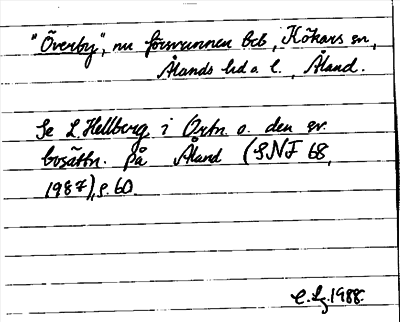 "Överby", nu försvunnen beb, Kökars sn,
Ålands hd o. l., Åland.
Se L Hellberg i Ortn. o. den sv.
bosättn. på Åland (SNF 68,
1987), s. 60.
C. Lg. 1988.